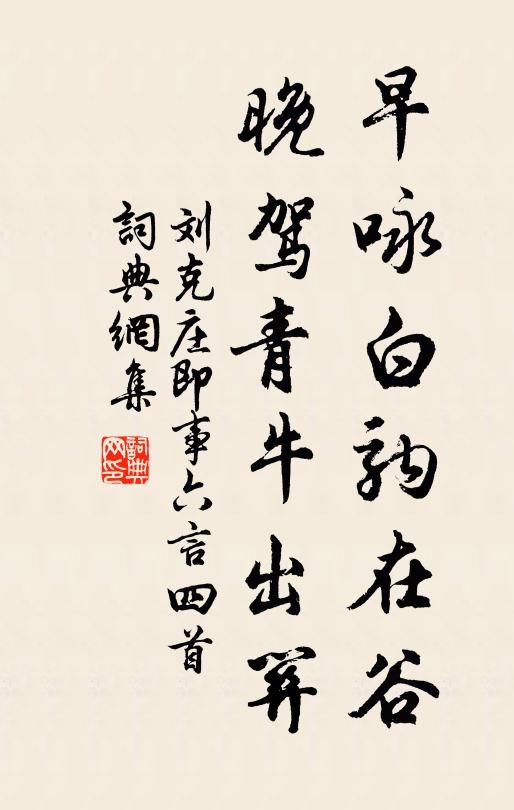 早咏白驹在谷
晚驾青牛出关
刘克庄即事六言四首
詞典網集
詞典网印